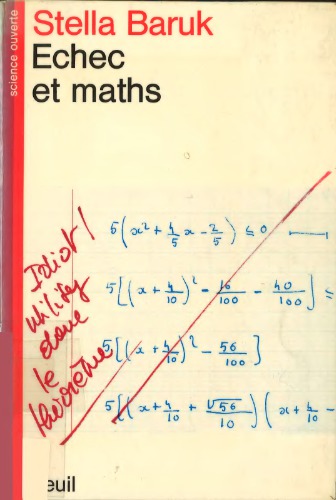 science ouverte
Stella Baruk
Echec
et maths
5(x² + 4/5 x - 2/5) ≤ 0
5[(x + 4/10)² - 16/100 - 40/100] ≤
5[(x + 4/10)² - 56/100]
5[(x + 4/10 + √56/10)(x + 4/10 -
Idiot!
utilisez
donc
le
théorème
euil